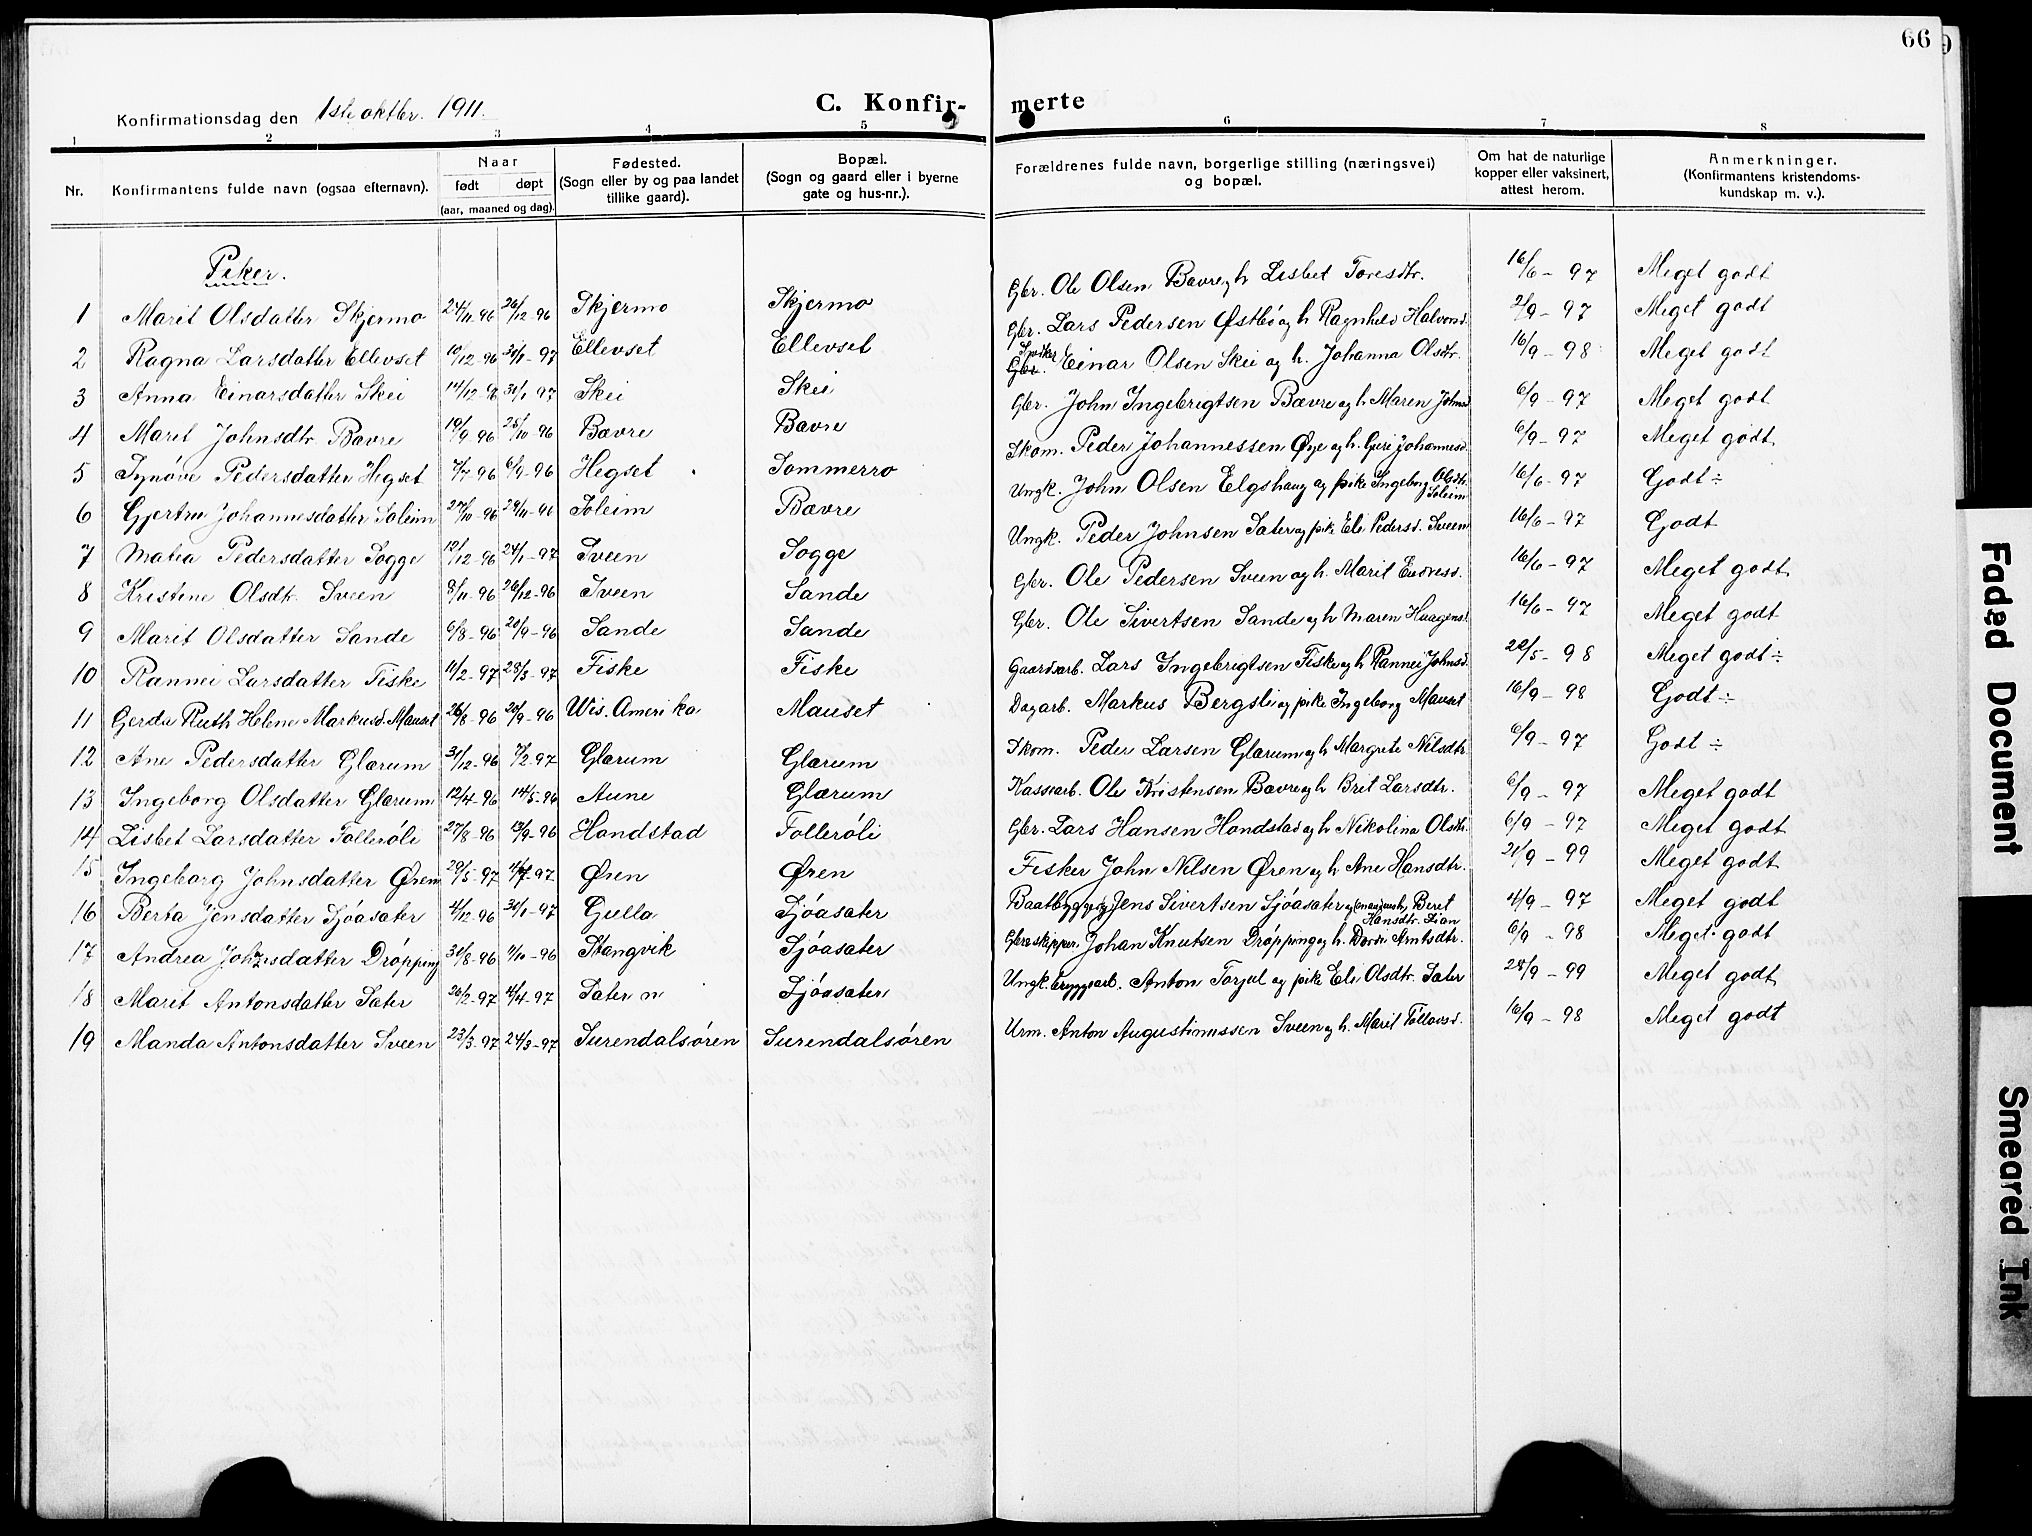 66
Konfirmationsdag den 1ste oktbr. 1911.
C. Konfir-
merte
1 2 3 4 5 6 7 8
Nr. Konfirmantens fulde navn (ogsaa efternavn). Naar født døpt (aar, maaned og dag). Fødested. (Sogn eller by og paa landet tillike gaard). Bopæl. (Sogn og gaard eller i byerne gate og hus-nr.). Forældrenes fulde navn, borgerlige stilling (næringsvei) og bopæl. Om hat de naturlige kopper eller vaksinert, attest herom. Anmerkninger. (Konfirmantens kristendomskundskap m. v.).
Piker.
1 Marit Olsdatter Skjermo 24/11-96 26/12-96 Skjermo Skjermo Gbr. Ole Olsen Bævre og h Lisbet Toresdtr. 16/6-97 Meget godt
2 Ragna Larsdatter Ellevset 10/12-96 31/1-97 Ellevset Ellevset Gbr. Lars Pedersen Østbö og h Ragnhild Halvorsd. 2/9-97 Meget godt
3 Anna Einarsdatter Skei 14/12-96 31/1-97 Skei Skei Einar Olsen Skei og h. Johanna Olsdtr. 16/9-98 Meget godt
4 Marit Johnsdtr. Bævre 19/9 96 25/10-96 Bævre Bævre Gbr. John Ingebrigtsen Bævre og h. Maren Johnsd 6/9-97 Meget godt
5 Synöve Pedersdatter Hegset 7/7-96 6/9-96 Hegset Sommerro Skom. Peder Johannessen Øye og h. Guri Johannesd. 6/9-97 Meget godt
6 Gjertru Johannesdatter Soleim 27/10-96 29/11-96 Soleim Bævre Ungk. John Olsen Eelgshaug og pike Ingeborg Olsdtr. Soleim 16/6-97 Godt÷
7 Matea Pedersdatter Sogge 12/12-96 24/1-97 Sveen Sogge Ungk. Peder Johnsen Sæter og pike Eli Pedersd. Sveen 16/6-97 Godt
8 Kristine Olsdtr. Sveen 8/11-96 26/12-96 Sveen Sande Gbr. Ole Pedersen Sveen og h. Marit Endresd. 16/6-97 Meget godt
9 Marit Olsdatter Sande 6/8-96 20/9-96 Sande Sande Gbr. Ole Sivertsen Sande og h Maren Haagensd. 16/6-97 Meget godt
10 Rannei Larsdatter Fiske 11/2-97 28/3-97 Fiske Fiske Gaardsarb. Lars Ingebrigtsen Fiske og h Rannei Johnsd. 22/5-98 Meget godt÷
11 Gerda Ruth Helene Markusd. Mauset 26/8-96 20/9-96 Wis. Amerika Mauset Dagarb. Markus Bergsli og pike Ingeborg Mauset 16/9-98 Godt÷
12 Ane Pedersdatter Glærum 31/12-96 7/2-97 Glærum Glærum Skom. Peder Larsen Glærum og h Margrete Nilsdtr. 6/9-97 Godt÷
13 Ingeborg Olsdatter Glærum 12/4-96 14/5-96 Aune Glærum Ole Kristensen Bævre og h Brit Larsdtr. 6/9-97 Meget godt
14 Lisbet Larsdatter Tolleröli 27/8-96 13/9-96 Handstad Tolleröli Gbr. Lars Hansen Handstad og h Nikolina Olsdtr. 6/9-97 Meget godt
15 Ingeborg Johnsdatter Øren 20/5-97 97 Øren Øren Fisker John Nilsen Øren og h Ane Hansdtr. 21/9-99 Meget godt
16 Berta Jensdatter Sjöasæter 4/12-96 31/1-97 Gulla Sjöasæter Jens Sivertsen Sjöasæter og Beret Hansdtr. Sian 4/9-97 Meget godt
17 Andrea Johansdatter Dröpping 31/8-96 11/10-96 Stangvik Sjöasæter Gbr. skipper. Johan Knutsen Dröpping og h. Dordi Arntsdtr. 6/9-98 Meget godt
18 Marit Antonsdatter Sæter 26/2-97 4/4-97 Sæter n Sjöasæter Ungk. bryggearb. Anton Torjul og pike Eli Olsdtr. Sæter 28/9-99 Meget godt
19 Manda Antonsdatter Sveen 23/3-97 24/3-97 Surendalsören Surendalsören Urm. Anton Augustinussen Sveen og h. Marit Töllovsd. 16/9-98 Meget godt
Faded Document
Smeared Ink